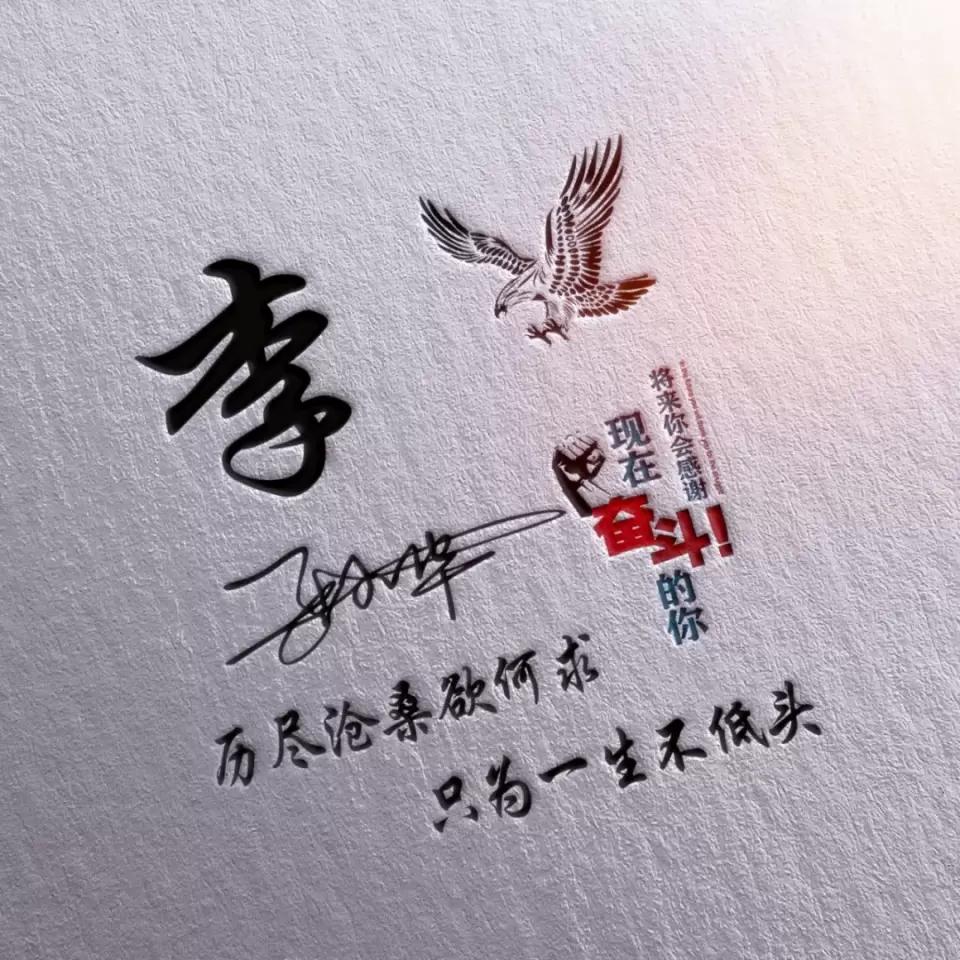 李
将来你会感谢
现在
奋斗
的你
历尽沧桑欲何求
只为一生不低头